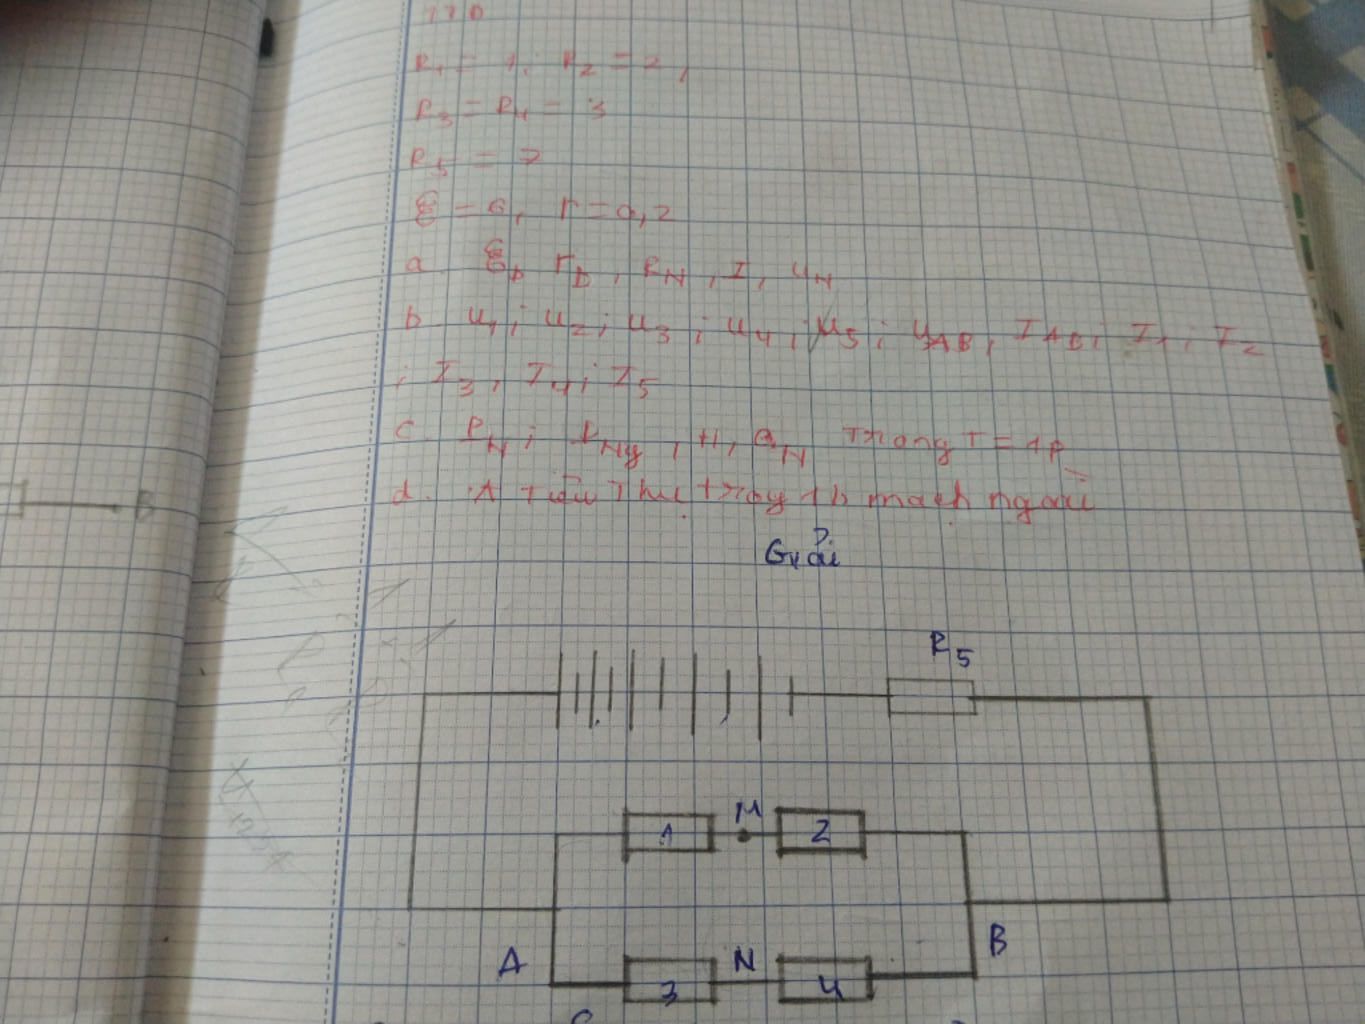 R1 = 1; R2 = 2,
R3 = R4 = 3
R5 = 7
ℰ = 6, r = 0,2
a. ℰb, rb, RN, I, UN
b. U1; U2; U3; U4; U5; UAB, IAB; I1; I2
; I3, I4; I5
c. PN; PNg, H, QN Trong T = 1p
d. A tiêu Thụ trong 1h mạch ngoài
Giải
R5
1 M 2
A 3 N 4 B